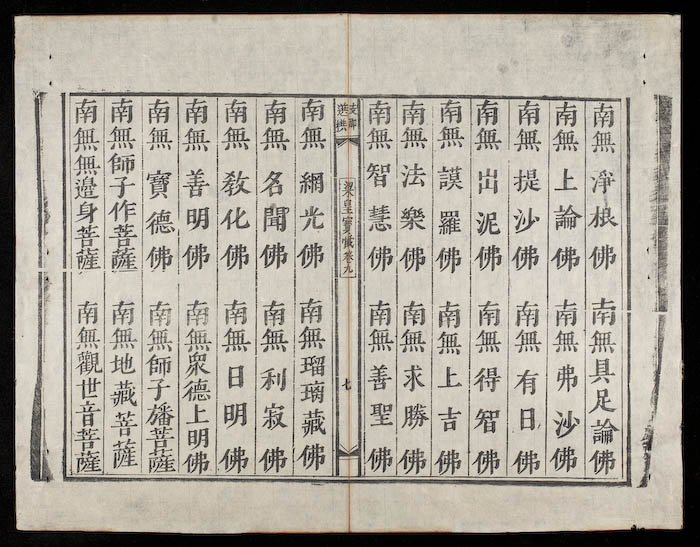 南無淨根佛 南無具足論佛
南無上論佛 南無弗沙佛
南無提沙佛 南無有日佛
南無出泥佛 南無得智佛
南無謨羅佛 南無上吉佛
南無法樂佛 南無求勝佛
南無智慧佛 南無善聖佛
梁皇寶懺卷九 七
南無網光佛 南無瑠璃藏佛
南無名聞佛 南無利寂佛
南無敎化佛 南無日明佛
南無善明佛 南無眾德上明佛
南無寶德佛 南無師子旙菩薩
南無師子作菩薩 南無地藏菩薩
南無無邊身菩薩 南無觀世音菩薩